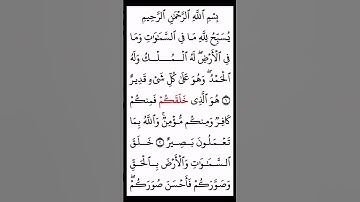 بِسْمِ ٱللَّهِ ٱلرَّحْمَٰنِ ٱلرَّحِيمِ
يُسَبِّحُ لِلَّهِ مَا فِي ٱلسَّمَٰوَٰتِ وَمَا
فِي ٱلْأَرْضِۖ لَهُ ٱلْمُلْكُ وَلَهُ
ٱلْحَمْدُۖ وَهُوَ عَلَىٰ كُلِّ شَيْءٍ قَدِيرٌ
١ هُوَ ٱلَّذِي خَلَقَكُمْ فَمِنكُمْ
كَافِرٌ وَمِنكُم مُّؤْمِنٌۚ وَٱللَّهُ بِمَا
تَعْمَلُونَ بَصِيرٌ ٢ خَلَقَ
ٱلسَّمَٰوَٰتِ وَٱلْأَرْضَ بِٱلْحَقِّ
وَصَوَّرَكُمْ فَأَحْسَنَ صُوَرَكُمْۖ